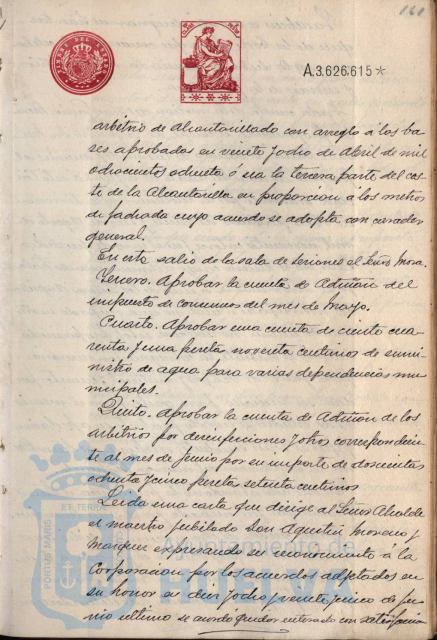 161
A.3.626.615*
arbitrio de alcantarillado con arreglo á los ba-
ses aprobadas en veinte y ocho de Abril de mil
ochocientos ochenta ó sea la tercera parte del cos-
te de la Alcantarilla en proporcion á los metros
de fachada cuyo acuerdo se adopta con caracter
general.
En este salio de la sala de sesiones el Señor Mora.
Tercero. Aprobar la cuenta de Admon del
impuesto de consumos del mes de Mayo.
Cuarto. Aprobar una cuenta de ciento cua-
renta y una peseta noventa centimos de sumi-
nistro de agua para varias dependencias mu-
nicipales.
Quito. Aprobar la cuenta de Admon de los
arbitrios por desinfecciones y otros correspondien-
te al mes de Junio por su importe de doscientas
ochenta y cinco peseta setenta centimos
Leida una carta que dirige al Señor Alcalde
el maestro jubilado Don Agustin Moreno y
Marquez expresando su reconocimiento á la
Corporacion por los acuerdos adoptados en
su honor en diez y ocho y veinte y cinco de Ju-
nio ultimo se acordó quedar enterado con satisfaccion
PORTUS MARIS
ET TERRAE
Ayuntamiento de